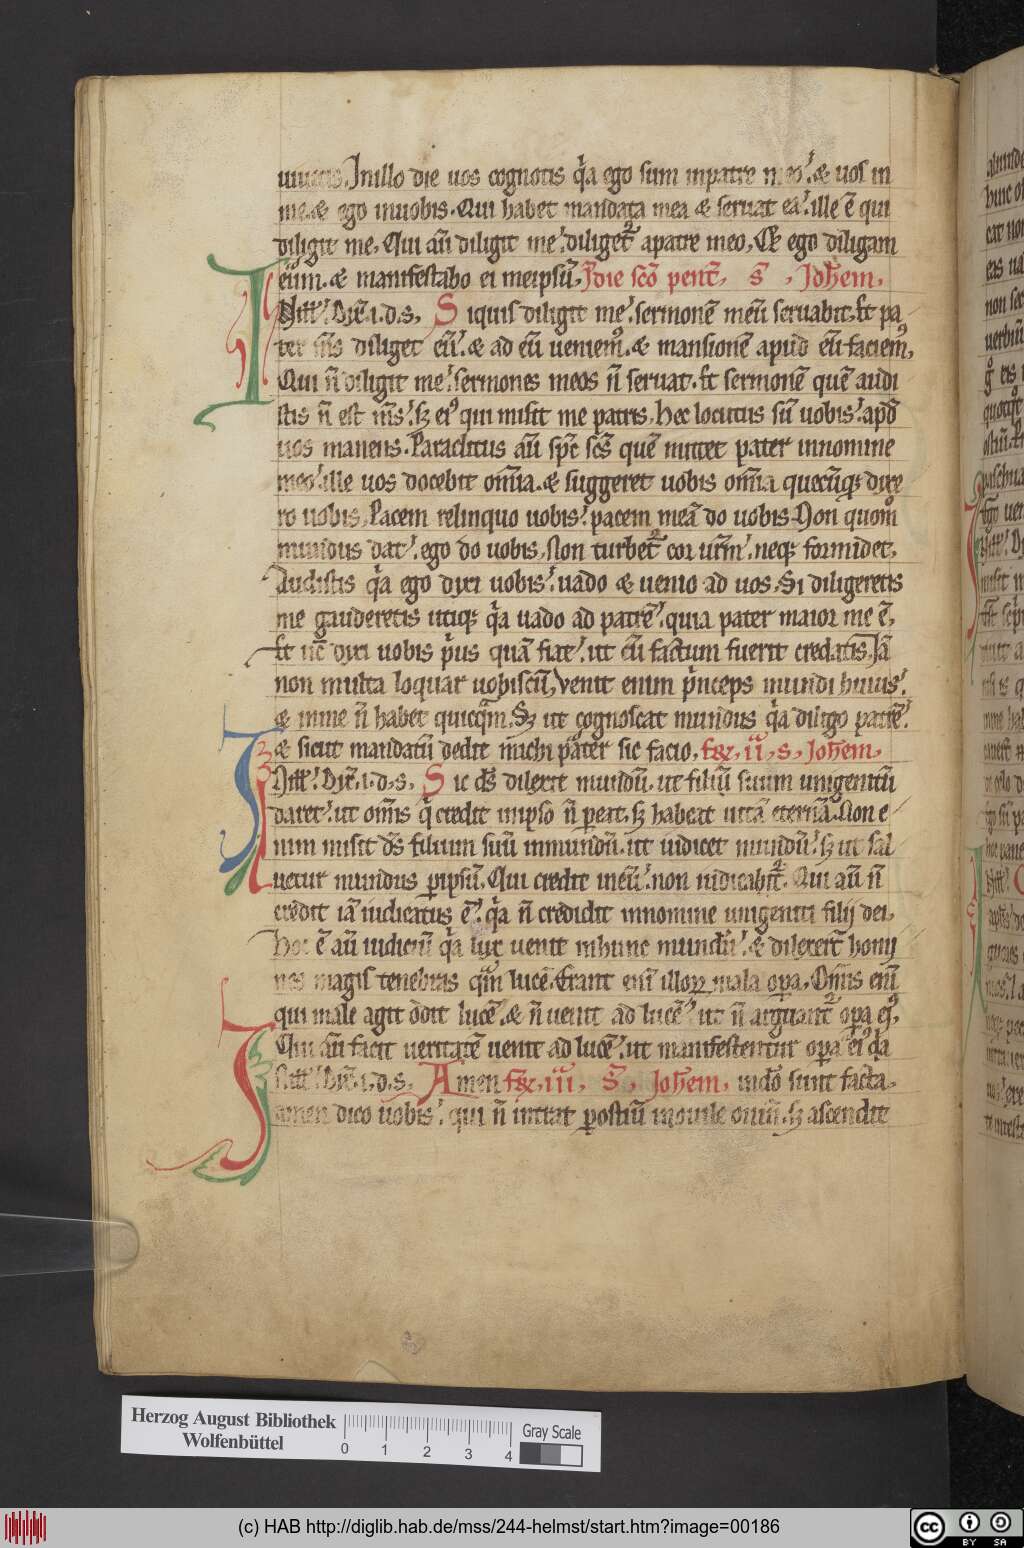 uiuetis. In illo die uos cognoscetis q̇a ego sum inpatre meo. & uos in
me. & ego inuobis. Qui habet mandata mea & seruat ea. ille ē qui
diligit me. Qui aū diligit me. diliget᷑ apatre meo. Et ego diligam
eūm. & manifestabo ei meipsū. Jndie scō pent̄. s̄. Joh̄em.
Jn ill̄. Dix̄. i. d. s. Siquis diligit me. sermonē meū seruabit. Et pa
ter m̄s diliget eū. & ad eū ueniem᷒. & mansionē apud eū faciem᷒.
Qui n̄ diligit me. sermones meos n̄ seruat. Et sermonē quē audi
stis n̄ est m̄s. sȝ ei᷒ qui misit me patris. Hec locutus sū uobis. apd̄
uos manens. Paraclitus aū spc̄ scs̄ quē mittet pater innomine
meo. ille uos docebit om̄ia. & suggeret uobis om̄ia quecūqȝ dixe
ro uobis. Pacem relinquo uobis. pacem meā do uobis. Non quom̊
mundus dat. ego do uobis. Non turbet᷑ cor ur̄m. neqȝ formidet.
Audistis q̇a ego dixi uobis. uado & uenio ad uos. Si diligeretis
me gauderetis utiqȝ q̇a uado ad patrē. quia pater maior me ē.
Et nc̄ dixi uobis ṗus quā fiat. ut cū factum fuerit credatis. Jā
non multa loquar uobiscū. Venit enim ṗnceps mundi huius.
& inme n̄ habet quicq̄m. Sȝ ut cognoscat mundus q̇a diligo patrē.
& sicut mandatū dedit michi pater sic facio. fer̄. ii. s. Joh̄em.
Jn ill̄. Dix̄. i. d. s. Sic ds̄ dilexit mundū. ut filiū suum unigenitū
daret. ut om̄is q̇ credit inipso n̄ pereat. sȝ habeat uitā eternā. Non e
nim misit ds̄ filium suū inmundū. ut iudicet mundū. sȝ ut sal
uetur mundus p̱ipsū. Qui credit ineū. non iudicabit᷑. Qui aū n̄
credit iā iudicatus ē. q̇a n̄ credidit innomine unigeniti filij dei.
Hoc ē aū iudiciū q̇a lux uenit inhunc mundū. & dilexert̄ homi
nes magis tenebras q̄m lucē. Erant eni᷑ illorꝝ mala opa. Omis enī
qui male agit odit lucē. & n̄ uenit ad lucē. ut n̄ arguant᷑ opa ei᷒.
Qui aū facit ueritatē uenit ad lucē. ut manifestentur opa ei᷒ q̇a
Jn ill̄. Dix̄. i. d. s. Amen fer̄. iii. s̄. Joh̄em. indō sunt facta.
amen dico uobis. qui n̄ intrat p̱ ostiū inouile ouiū. sȝ ascendit
Herzog August Bibliothek
Wolfenbüttel
0 1 2 3 4
Gray Scale
(c) HAB http://diglib.hab.de/mss/244-helmst/start.htm?image=00186
cc BY SA